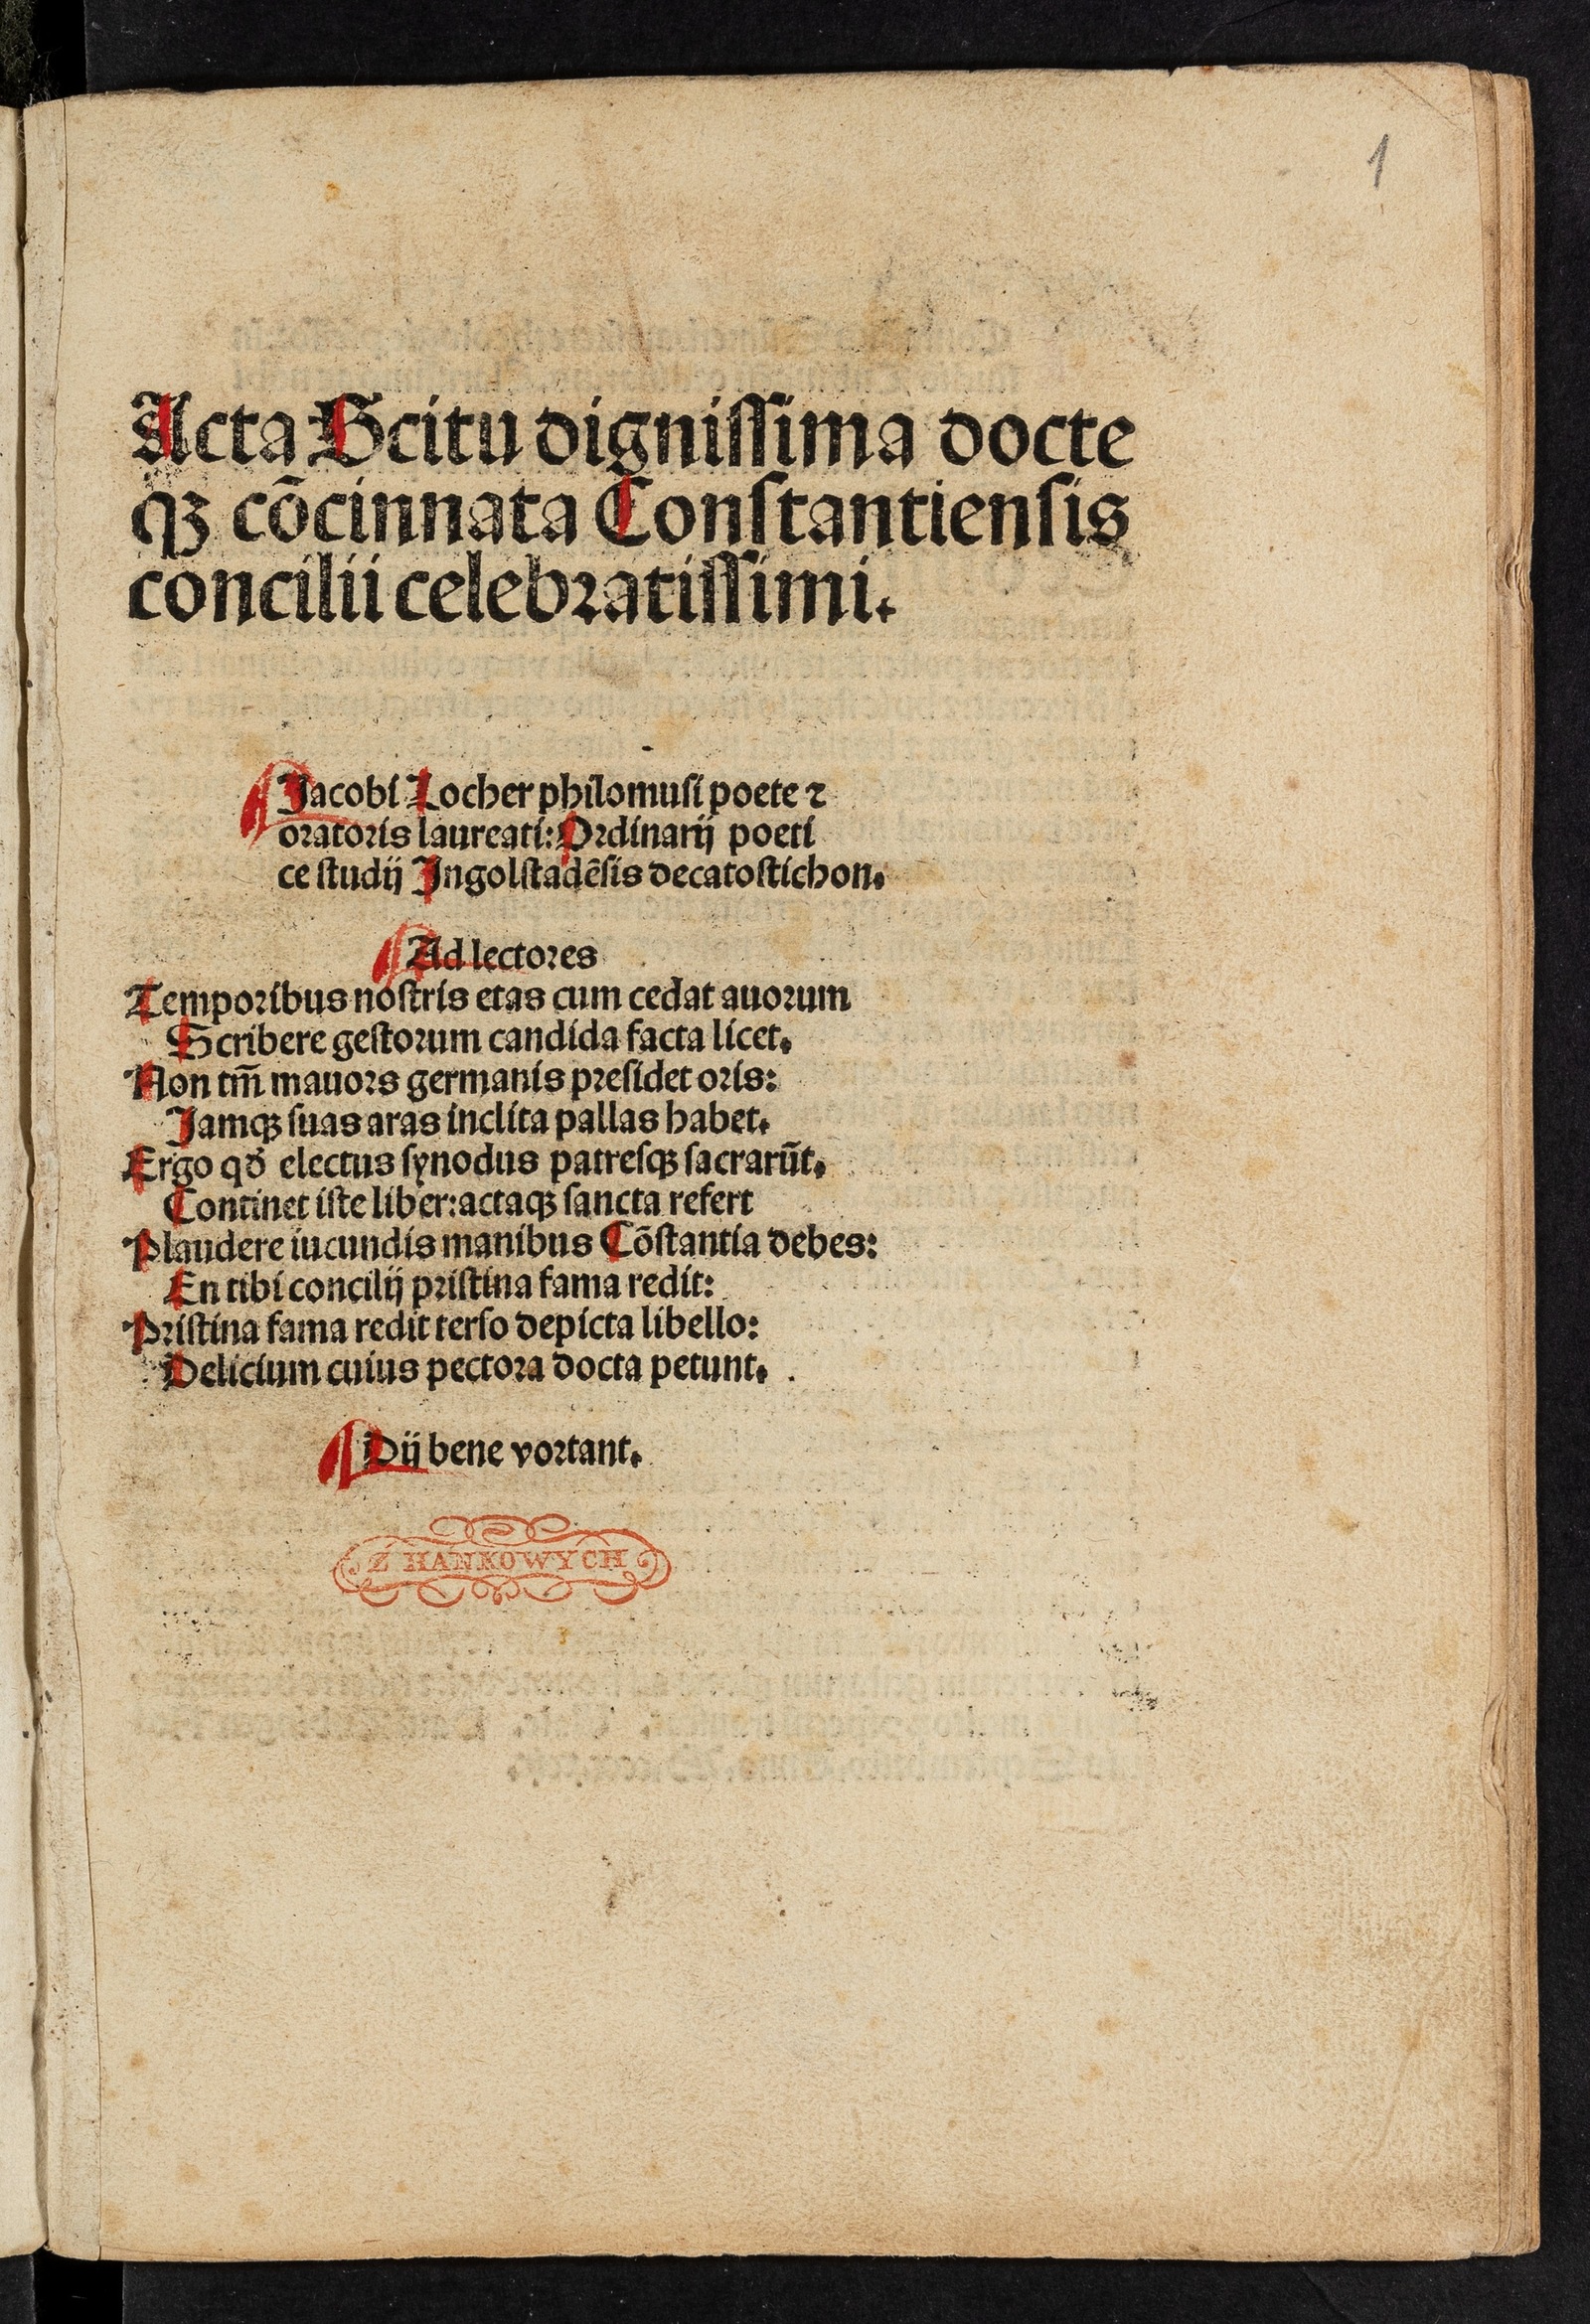 1
Acta Scitu digniſſima docte
qꝫ cōcinnata Conſtantienſis
concilii celebꝛatiſſimi.
Jacobi Locher philomuſi poete ⁊
oꝛatoꝛis laureati: Oꝛdinarij poeti
ce ſtudij Ingolſtadēſis decatoſtichon.
Ad lectoꝛes
Tempoꝛibus noſtris etas cum cedat auoꝛum
Scribere geſtoꝛum candida facta licet.
Non tm̄ mauoꝛs germanis pꝛeſidet oꝛis:
Jamqꝫ ſuas aras inclita pallas habet.
Ergo qđ electus ſynodus patreſqꝫ ſacrarūt.
Continet iſte liber: actaqꝫ ſancta refert
Plaudere iucundis manibus Cōſtantia debes:
En tibi concilij pꝛiſtina fama redit:
Pꝛiſtina fama redit terſo depicta libello:
Delicium cuius pectoꝛa docta petunt.
Dij bene voꝛtant.
Z HANKOWYCH